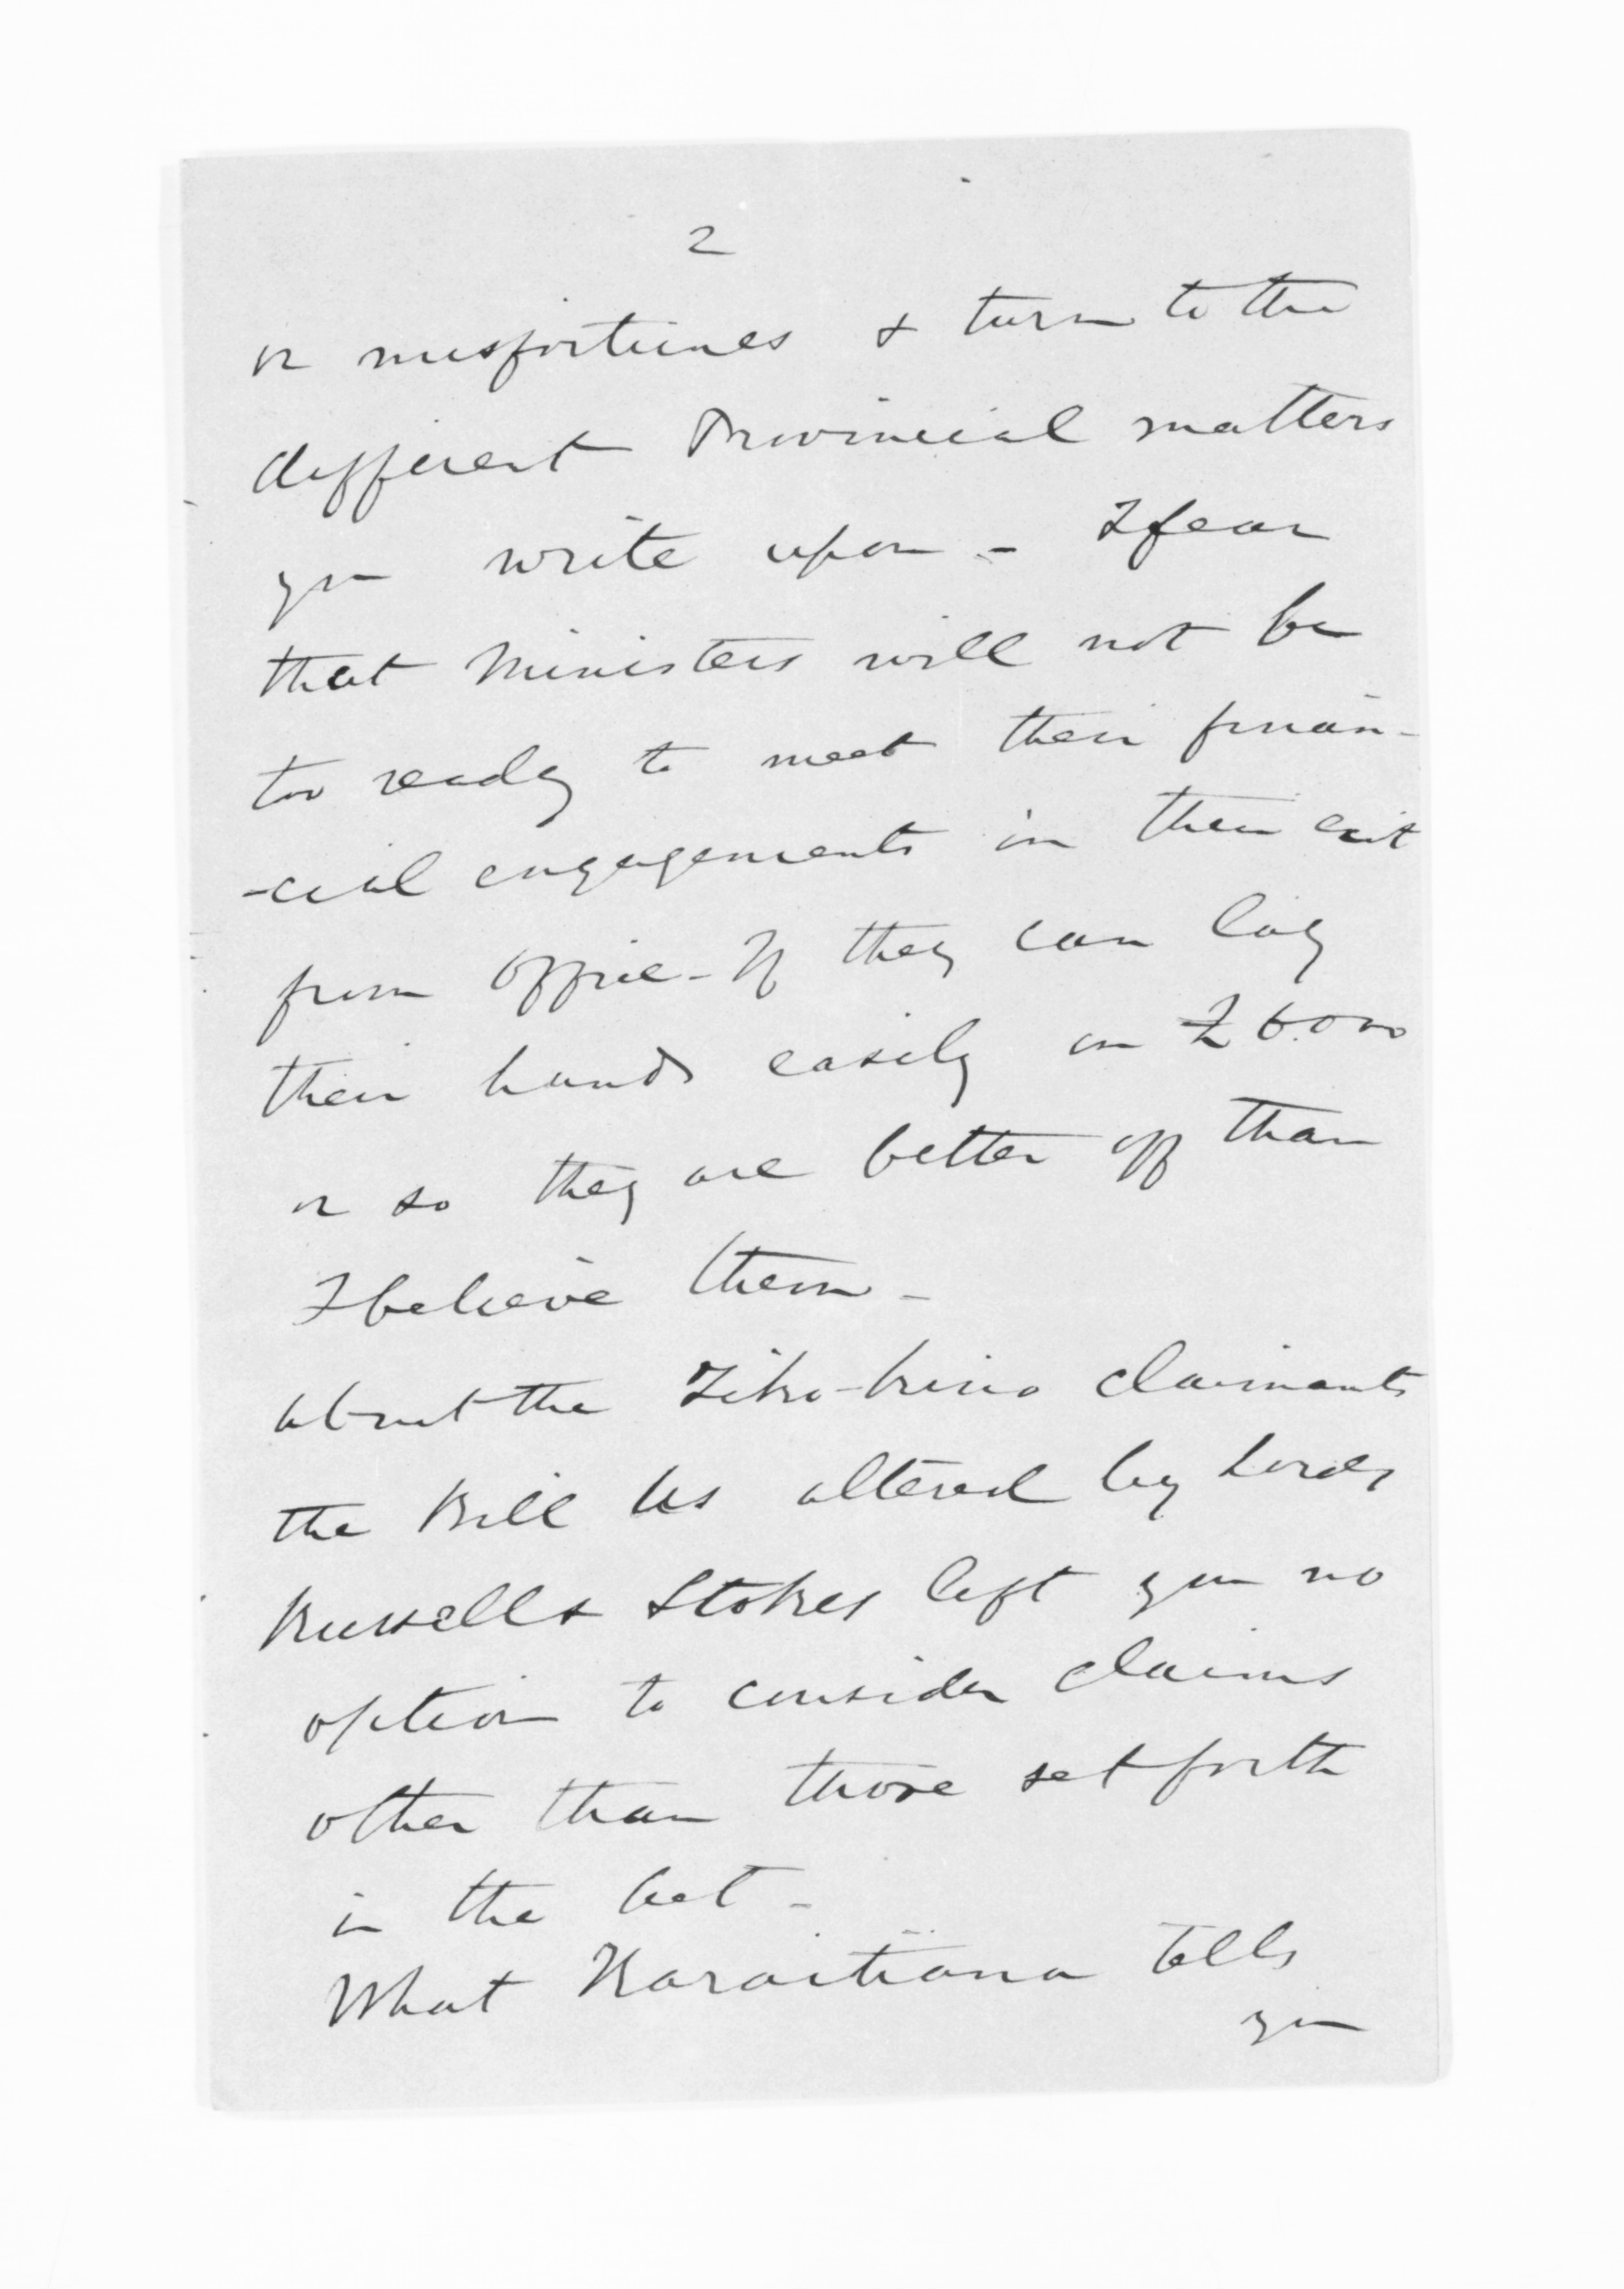 2
or misfortunes & turn to the
different Provincial matters
you write upon - I fear
that Ministers will not be
too ready to meet their finan-
-cial engagements in their exit
from office - If they can lay
their hands easily on £6.000
or so they are better off than
I believe them -
about the claimants
the Bill as altered by Lords
Russell & Stokes left you no
option to consider claims
other than those set forth
in the Act -
What Karaitiana tells
you